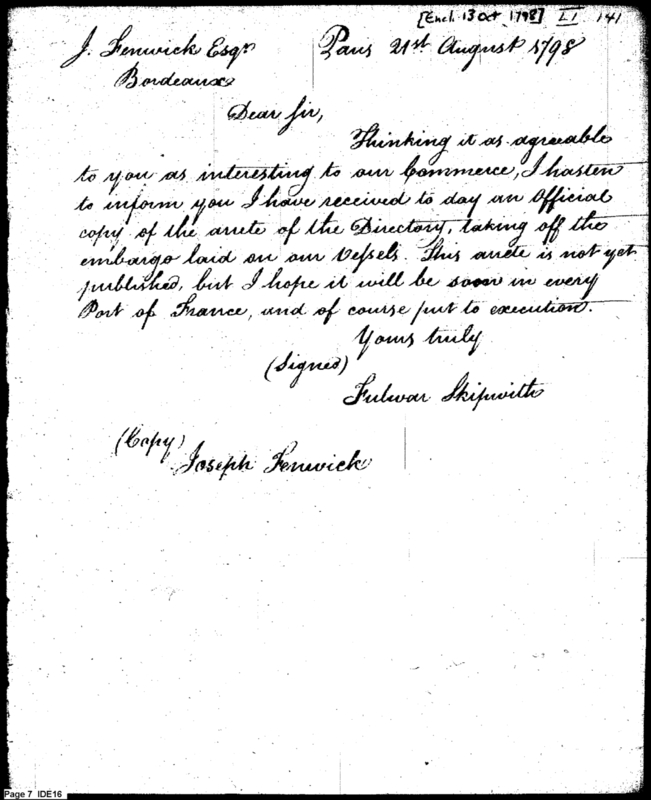 [Encl. 13 Oct. 1798] LI 141
J. Fenwick Esqr Paris 21st August 1798
Bordeaux
Dear Sir,
Thinking it as agreeable
to you as interesting to our Commerce, I hasten
to inform you I have received to day an Official
copy of the arrete of the Directory, taking off the
embargo laid on our Vessels. This arrete is not yet
published, but I hope it will be soon in every
Port of France, and of course put to execution.
Yours truly
(Signed)
Fulwar Skipwith
(Copy)
Joseph Fenwick
Page 7 IDE16